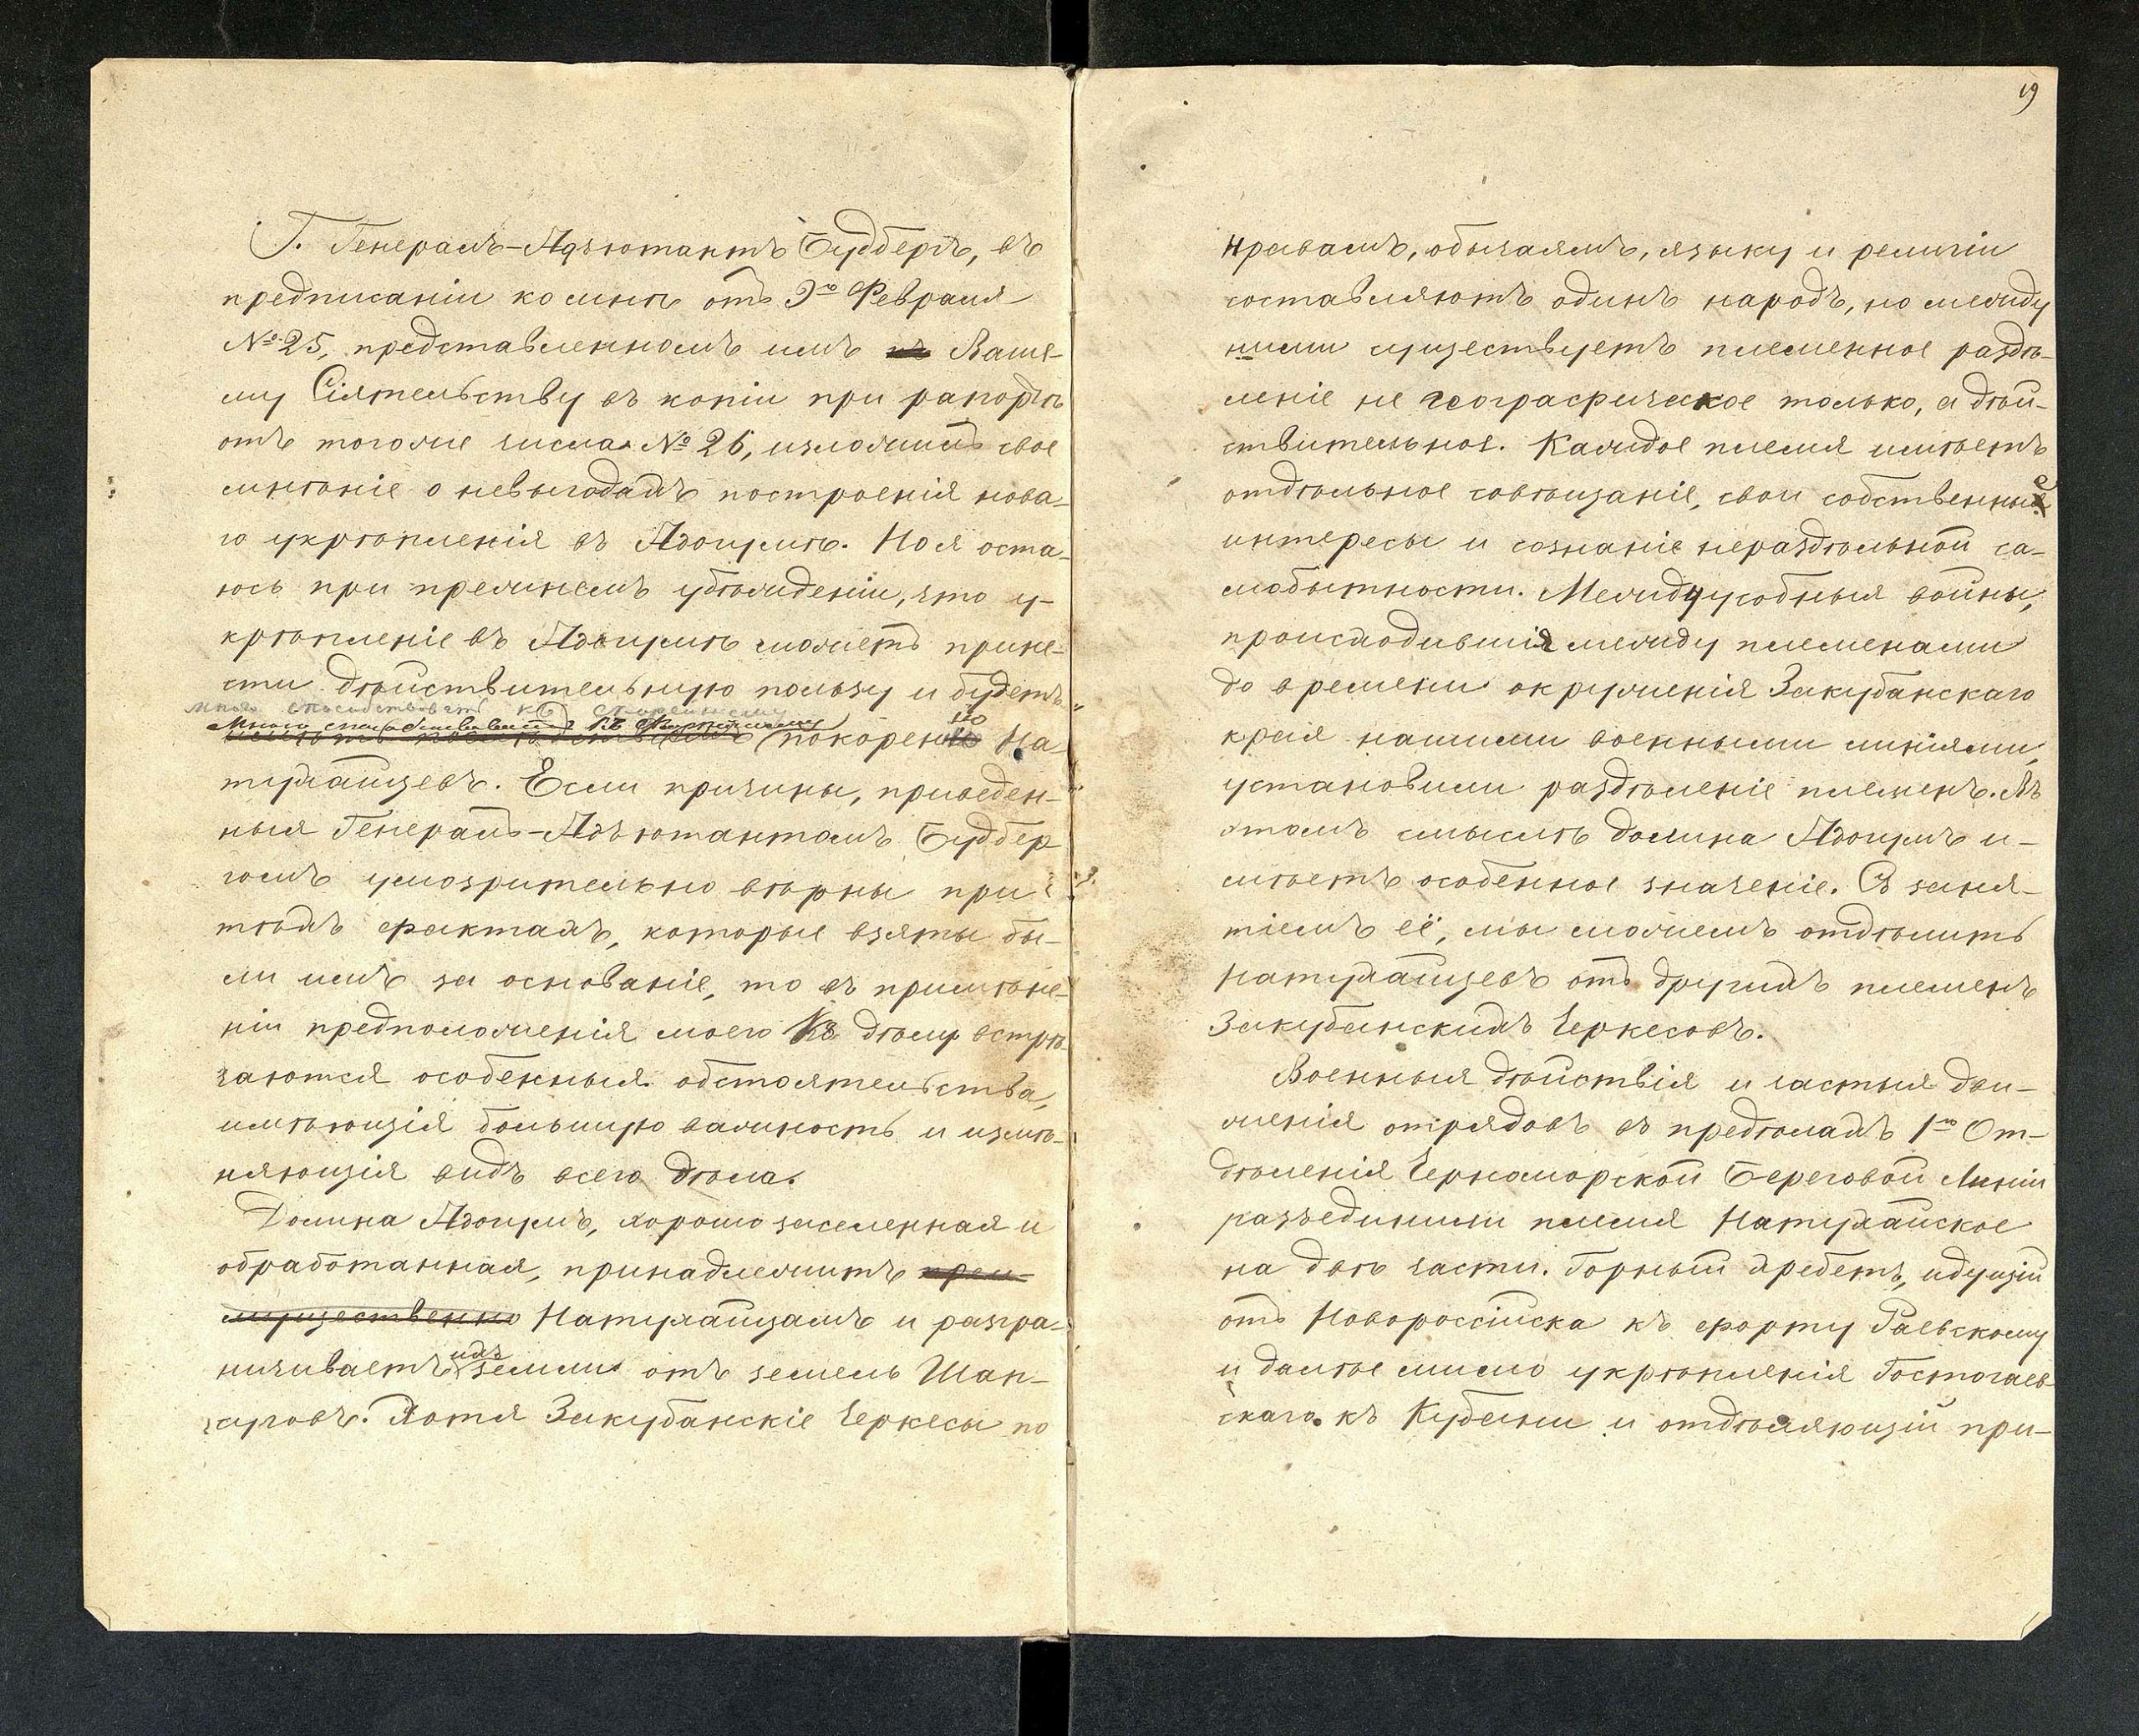 Г. Генералъ-Адъютантъ Будбергъ, въ
предписаніи ко мнѣ отъ 9го Февраля
№ 25, представленномъ имъ Ваше-
му Сіятельству въ копіи при рапортѣ
отъ тогоже числа № 26, изложилъ свое
мнѣніе о невыгодахъ построенія нова-
го укрѣпленія въ Адагумѣ. Но я оста-
юсь при прежнемъ убѣжденіи, что у-
крѣпленіе въ Адагумѣ можетъ прине-
сти дѣйствительную пользу и будетъ
много способствовать къ скорейшему
много способствовать къ скорейшему
покоренію На-
тухайцевъ. Если причины, приведен-
ныя Генералъ-Адъютантомъ Будбер-
гомъ умозрительно вѣрны при
тѣхъ фактахъ, которые взяты бы-
ли имъ за основаніе, то въ примѣне-
ніи предположенія моего къ дѣлу встрѣ-
чаются особенныя обстоятельства,
имѣющія большую важность и измѣ-
няющія видъ всего дѣла.
Долина Адагумъ, хорошо заселенная и
обработанная, принадлежитъ преи-
мущественно Натухайцамъ и разгра-
ничиваетъ ихъ земли отъ земель Шап-
суговъ. Хотя Закубанскіе Черкесы по
19
нравамъ, обычаямъ, языку и религіи
составляютъ одинъ народъ, но между
ними существуетъ племенное раздѣ-
леніе не географическое только, а дѣй-
ствительное. Каждое племя имѣетъ
отдѣльное совѣщаніе, свои собственные
интересы и сознаніе нераздѣльной са-
мобытности. Междуусобныя войны,
происходившія между племенами
до времени окруженія Закубанскаго
края нашими военными линіями,
установили раздѣленіе племенъ. Въ
этомъ смыслѣ долина Адагумъ и-
мѣетъ особенное значеніе. Съ заня-
тіемъ её, мы можемъ отдѣлить
Натухайцевъ отъ другихъ племенъ
Закубанскихъ Черкесовъ.
Военныя дѣйствія и частыя дви-
женія отрядовъ въ предѣлахъ 1го От-
дѣленія Черноморской Береговой Линіи
разъединили племя Натухайское
на двѣ части. Горный хребетъ, идущій
отъ Новороссійска къ форту Раевскому
и далѣе мимо укрѣпленія Гостогаев-
скаго къ Кубани и отдѣляющій при-